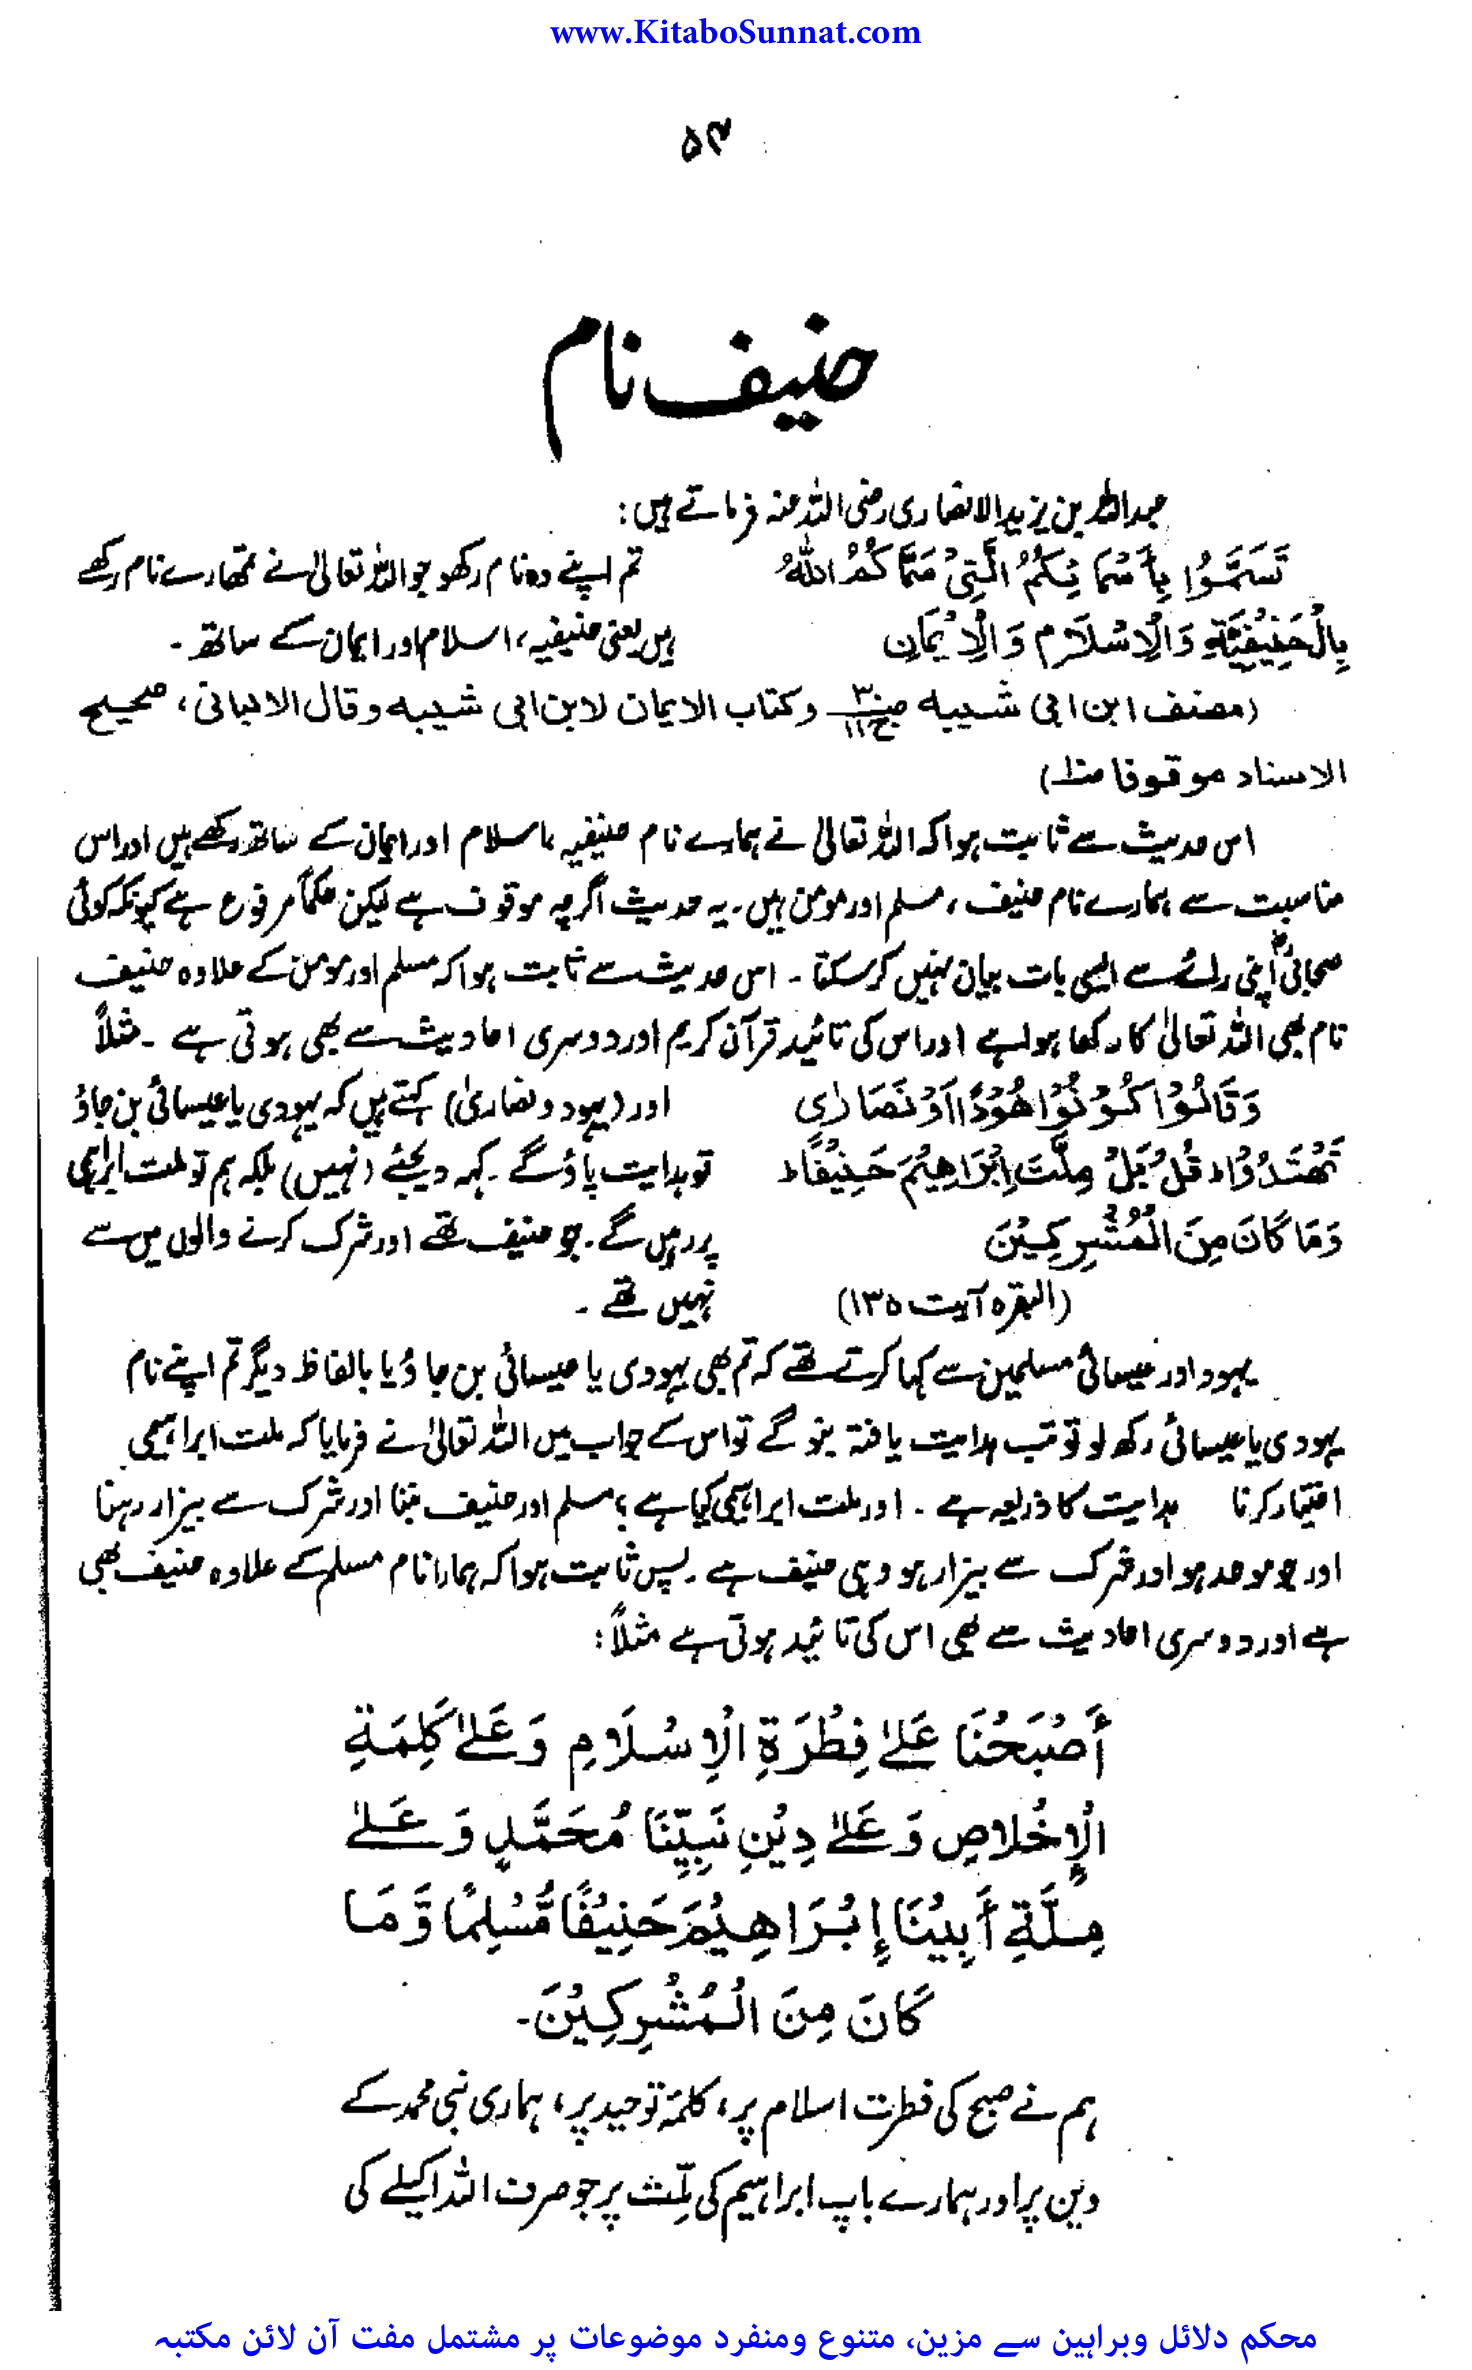 www.KitaboSunnat.com
۵۳
حنیف نام
عبداللہ بن یزید الانصاری رضی اللہ عنہ فرماتے ہیں:
تَسَمَّوْا بِأَسْمَائِكُمُ الَّتِيْ سَمَّاكُمُ اللهُ تم اپنے وہ نام رکھو جو اللہ تعالیٰ نے تمھارے نام رکھے
بِالْحَنِيْفِيَّةِ وَالْاِسْلَامِ وَالْاِيْمَانِ ہیں یعنی حنیفیہ، اسلام اور ایمان کے ساتھ۔
(مصنف ابن ابی شیبہ ج۱۱ وکتاب الایمان لابن ابی شیبہ وقال الالبانی، صحیح
الاسناد موقوفا)
اس حدیث سے ثابت ہوا کہ اللہ تعالیٰ نے ہمارے نام حنیفیہ، اسلام اور ایمان کے ساتھ رکھے ہیں اور اس
مناسبت سے ہمارے نام حنیف، مسلم اور مومن ہیں۔ یہ حدیث اگرچہ موقوف ہے لیکن حکماً مرفوع ہے کیونکہ کوئی
صحابیؓ اپنی رائے سے ایسی بات بیان نہیں کرسکتا۔ اس حدیث سے ثابت ہوا کہ مسلم اور مومن کے علاوہ حنیف
نام بھی اللہ تعالیٰ کا رکھا ہوا ہے اور اس کی تائید قرآن کریم اور دوسری احادیث سے بھی ہوتی ہے۔ مثلاً
وَقَالُوْا كُوْنُوْا هُوْدًا اَوْ نَصَارٰى اور (یہود و نصاریٰ) کہتے ہیں کہ یہودی یا عیسائی بن جاؤ
تَهْتَدُوْا ط قُلْ بَلْ مِلَّتَ اِبْرَاهِيْمَ حَنِيْفًا ط تو ہدایت پاؤ گے۔ کہہ دیجئے (نہیں) بلکہ ہم تو ملت ابراہیمی
وَمَا كَانَ مِنَ الْمُشْرِكِيْنَ پر رہیں گے۔ جو حنیف تھے اور شرک کرنے والوں میں سے
(البقرہ آیت ۱۳۵) نہیں تھے۔
یہود اور عیسائی مسلمین سے کہا کرتے تھے کہ تم بھی یہودی یا عیسائی بن جاؤ یا بالفاظ دیگر تم اپنے نام
یہودی یا عیسائی رکھ لو تو تب ہدایت یافتہ بنو گے تو اس کے جواب میں اللہ تعالیٰ نے فرمایا کہ ملت ابراہیمی
اختیار کرنا ہدایت کا ذریعہ ہے۔ اور ملت ابراہیمی کیا ہے؟ مسلم اور حنیف بننا اور شرک سے بیزار رہنا
اور جو موحد ہو اور شرک سے بیزار ہو وہی حنیف ہے۔ پس ثابت ہوا کہ ہمارا نام مسلم کے علاوہ حنیف بھی
ہے اور دوسری احادیث سے بھی اس کی تائید ہوتی ہے مثلاً:
أَصْبَحْنَا عَلىٰ فِطْرَةِ الْاِسْلَامِ وَعَلىٰ كَلِمَةِ
الْإِخْلَاصِ وَعَلىٰ دِيْنِ نَبِيِّنَا مُحَمَّدٍ وَعَلىٰ
مِلَّةِ أَبِيْنَا إِبْرَاهِيْمَ حَنِيْفًا مُّسْلِمًا وَّمَا
كَانَ مِنَ الْمُشْرِكِيْنَ۔
ہم نے صبح کی فطرت اسلام پر، کلمۂ توحید پر، ہماری نبی محمد کے
دین پر اور ہمارے باپ ابراہیم کی ملّت پر جو صرف اللہ اکیلے کی
محکم دلائل وبراہین سے مزین، متنوع ومنفرد موضوعات پر مشتمل مفت آن لائن مکتبہ